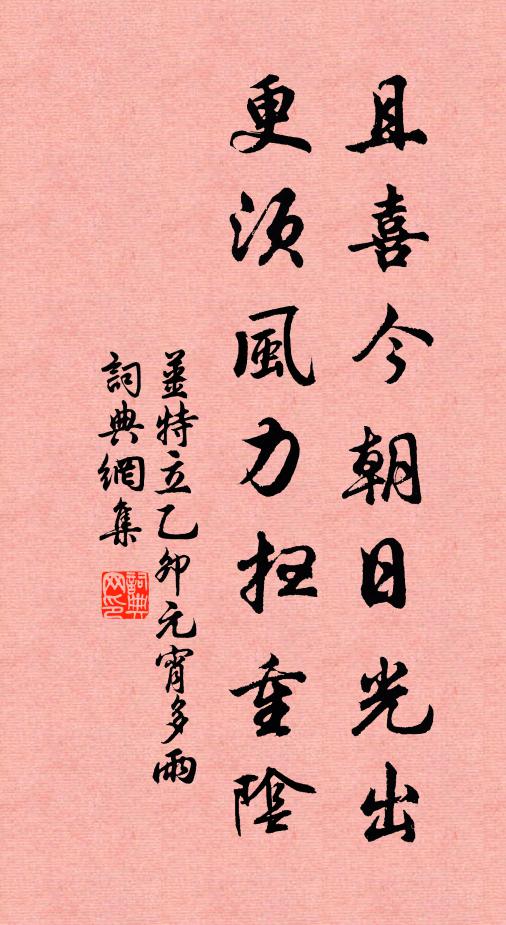 且喜今朝日光出
更須風力掃重陰
姜特立乙卯元宵多雨
詞典網集
詞典网印